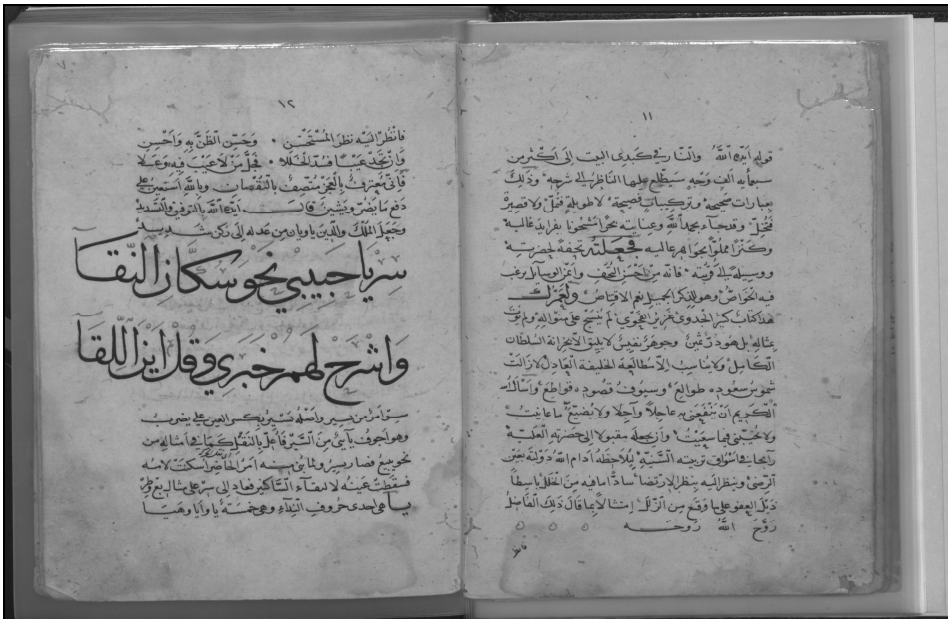 ١١
قوله أيده الله والنار في كبدي البيت الى اكثر من
سبعمأيه الف وجه سيطلع عليها الناظر في شرحه وذلك
بعبارات صحيحه وتركيبات فصيحه لا طويله فتمل ولا قصيره
فتخل وقد جاء بحمد الله وعنايته بحرا مشحونا بفرايد غاليه
وكنزا مملوا بجواهر عاليه فجعلته تحفة لحضرته
ووسيلة الى فانه من احسن التحف واعز الوسايل يرغب
فيه الخواص وهو للذكر الجميل نعم الاقتناص ولعمرك
هذا كتاب كثير الجدوى عزيز الفحوى لم ينسج على منواله ولم يؤت
بمثاله بل هو در ثمين وجوهر نفيس لا يليق الا بخزانة السلطان
الكامل ولا يناسب الا مطالعة الخليفة العادل لا زالت
شموس سعوده طوالع وسيوف قاطع واسأل الله
الكريم ان ينفعني به عاجلا وآجلا ولا يضيع ما عانيت
ولا يخيبني فيما سعيت وان يجعله مقبولا الى حضرته العلية
رايجا في اسواق تربيته السنية يلاحظه ادام الله دولته بعين
الرضى وينظر اليه بنظر الارتضا سادا ما فيه من الخلل باسطا
ذيل العفو على ما وقع من الزلل امتثالا بما قال ذلك الفاضل
روح الله روحه
فانظر
١٢
فانظر اليه نظر المستحسن وحسن الظن به واحسن
وان تجد عيبا فسد الخللا فجل من لا عيب فيه وعلا
فاني معترف بالعجز متصف بالنقصان وبالله استعين على
دفع ما يضر ويشين قال ايده الله بالتوفيق والتسديد
وجعل الملك والدين ياويان من عدله الى ركن شديد
سر يا حبيبي نحو سكان النقا
واشرح لهم خبري وقل اين اللقا
سر امر من تسير واصله تسير بكسر العين على يضرب
وهو اجوف يآئي من السير فاعل بالنقل كما في امثاله من
نحو يبيع فصار يسير ولما بني منه امر الحاضر اسكنت لامه
فسقطت عينه لالتقاء الساكنين فعاد الى سر على مثال بع
يا هي احدى حروف النداء وهي خمسة يا وايا وهيا